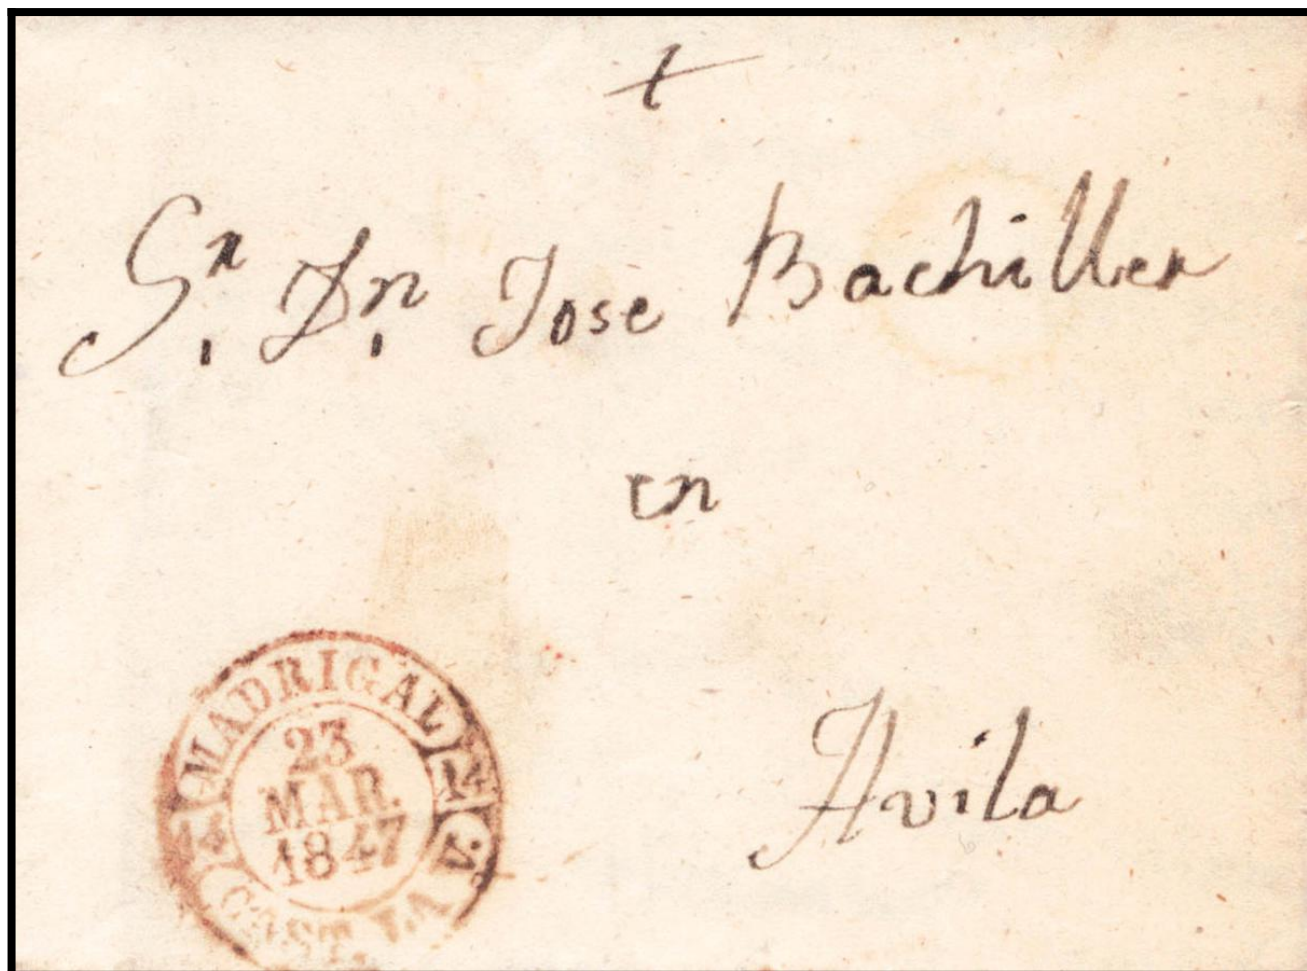 Sr. Dn. Jose Bachiller
en
Avila
MADRIGAL
23
MAR.
1847
CAST. LA V.